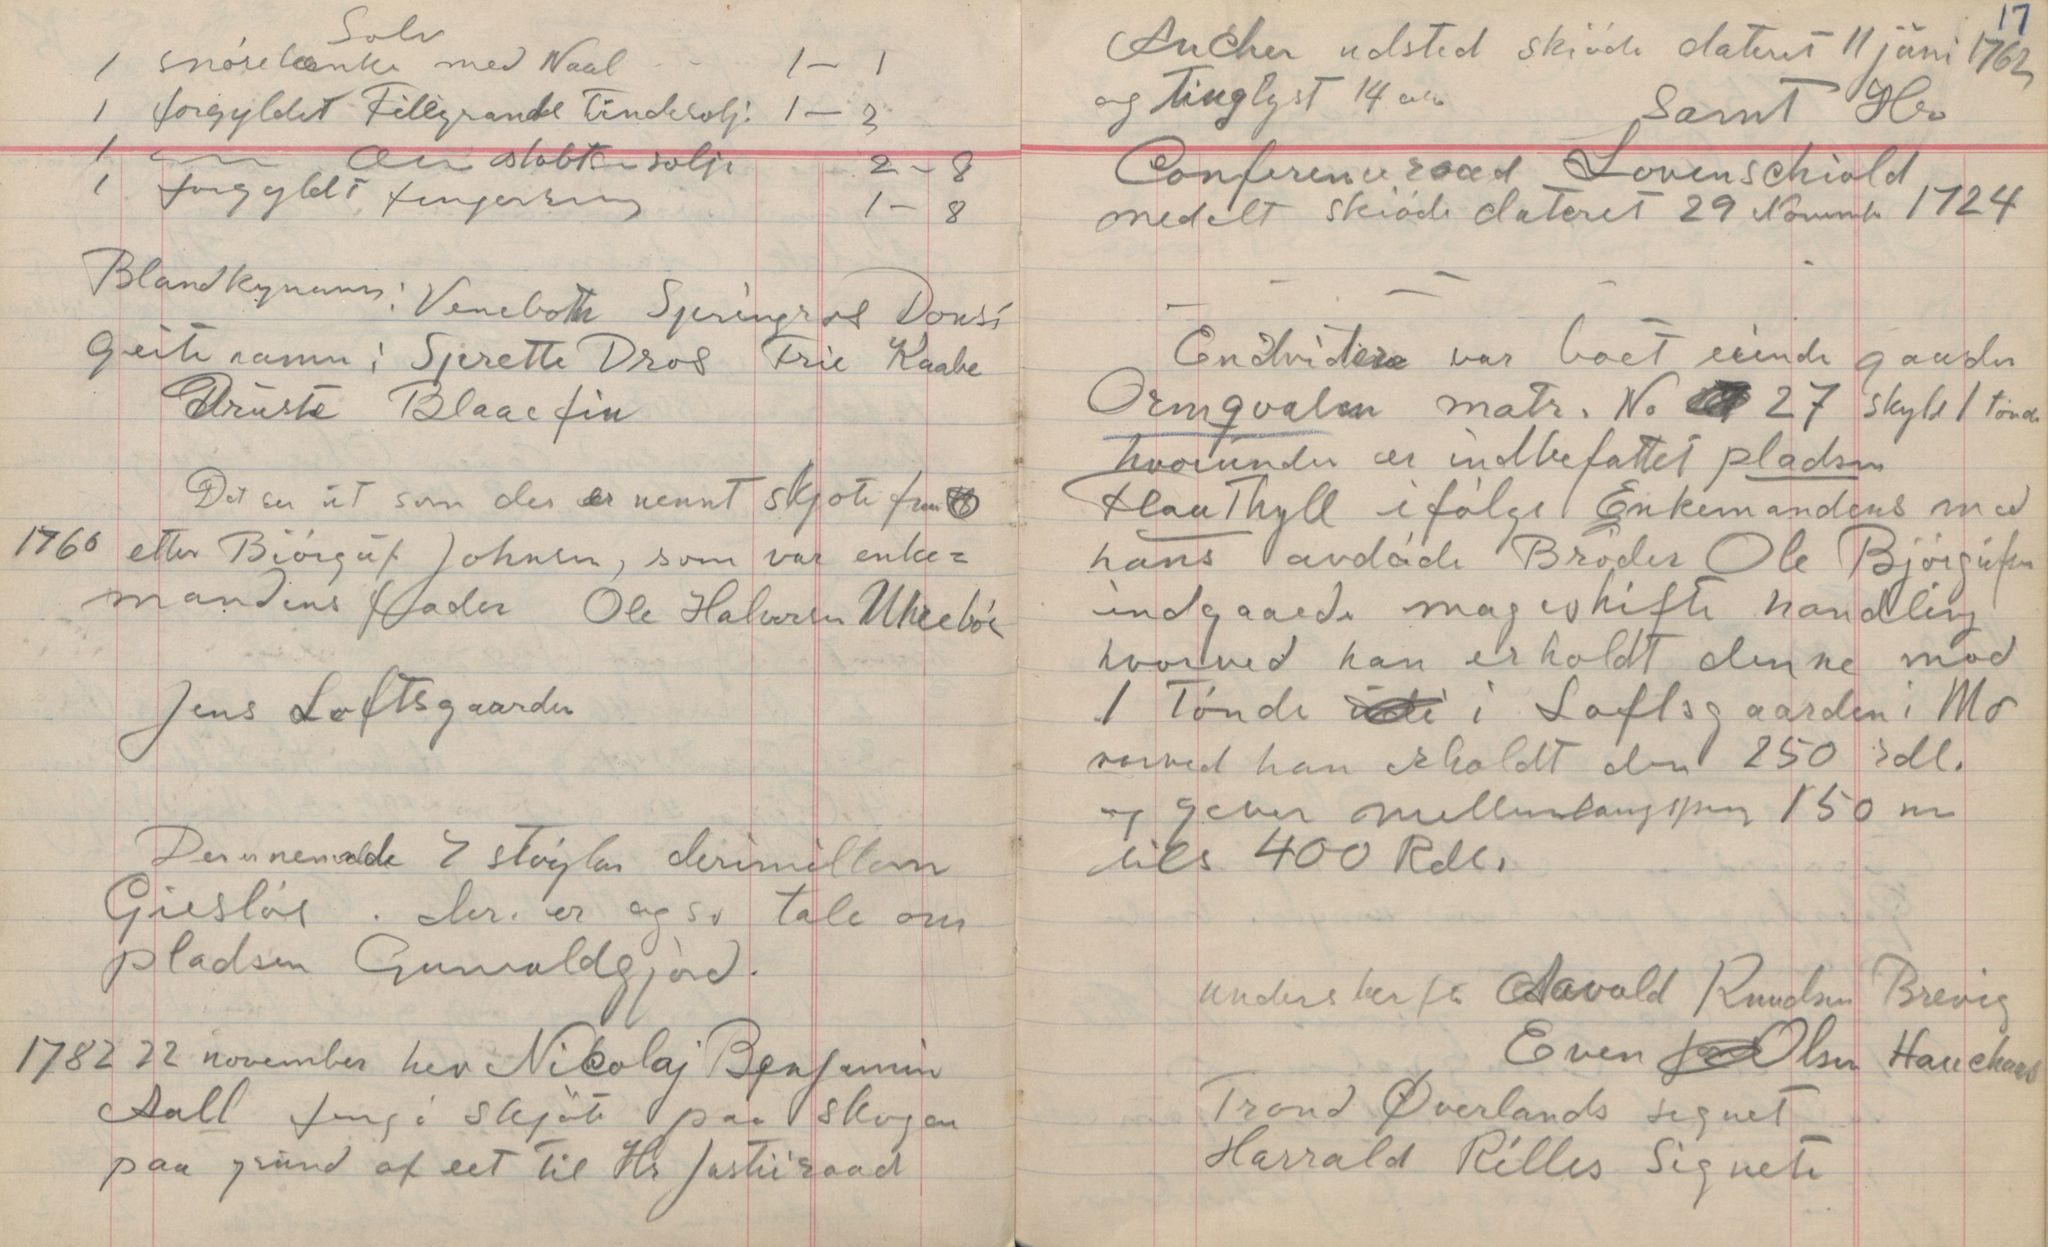 Solv
1 snörelænke med Naal 1 - 1
1 forgyldt Filegrande Tindesolj: 1 - 3
1 støbt solje 2 - 8
1 forgyldt fingerring 1 - 8
Blandkynamn: Venebot Springros Dousi
Geitenamn: Sperette Dros Frie Kaabe
Druste Blaaefin
Det ser ut som der er nennt skjøte fra
1760 etter Biörguf Johnsen, som var enke=
mandens fader Ole Halvorsen Uhreböe
Jens Loftsgaarden
Der er nemnde 7 støylar derimillom
Giesløs . der er ogso tale om
pladsen Gunvaldgjörd.
1782 22 november hev Nikolaj Benjamin
Aall fengi skjöte paa skogen
paa grund af eet til Hr Justiiraad
17
Ancher udsted skiöde dateret 11 juni 1762
og Tinglyst 14 Samt Hr
Conferenceraad Lovenschiold
medelt skiöde dateret 29 November 1724
Endvidere var boet eiende gaarden
Ormqvalen matr. No 27 skyld 1 tönde
hvorunder er indbefattet pladsen
HauThyll ifölge Enkemandens med
hans avdöde Broder Ole Björgufsen
indgaaede mageskifte handling
hvorved han erholdt denne mod
1 Tönde i Loftsgaarden i Mo
vorved han erholdt den 250 rdl.
og gever mellumlaugspeng 150 er
tils 400 Rdl.
underskrifter Aavold Knudsen Brevig
Even Olsen Hauckaas
Trond Øverlands signet
Harrald Rilles Signete